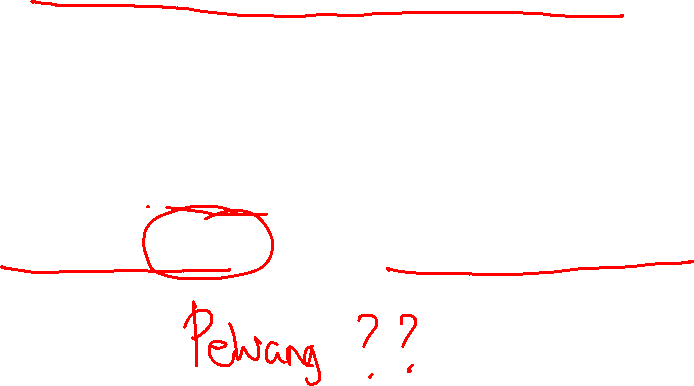 Pelwang ??